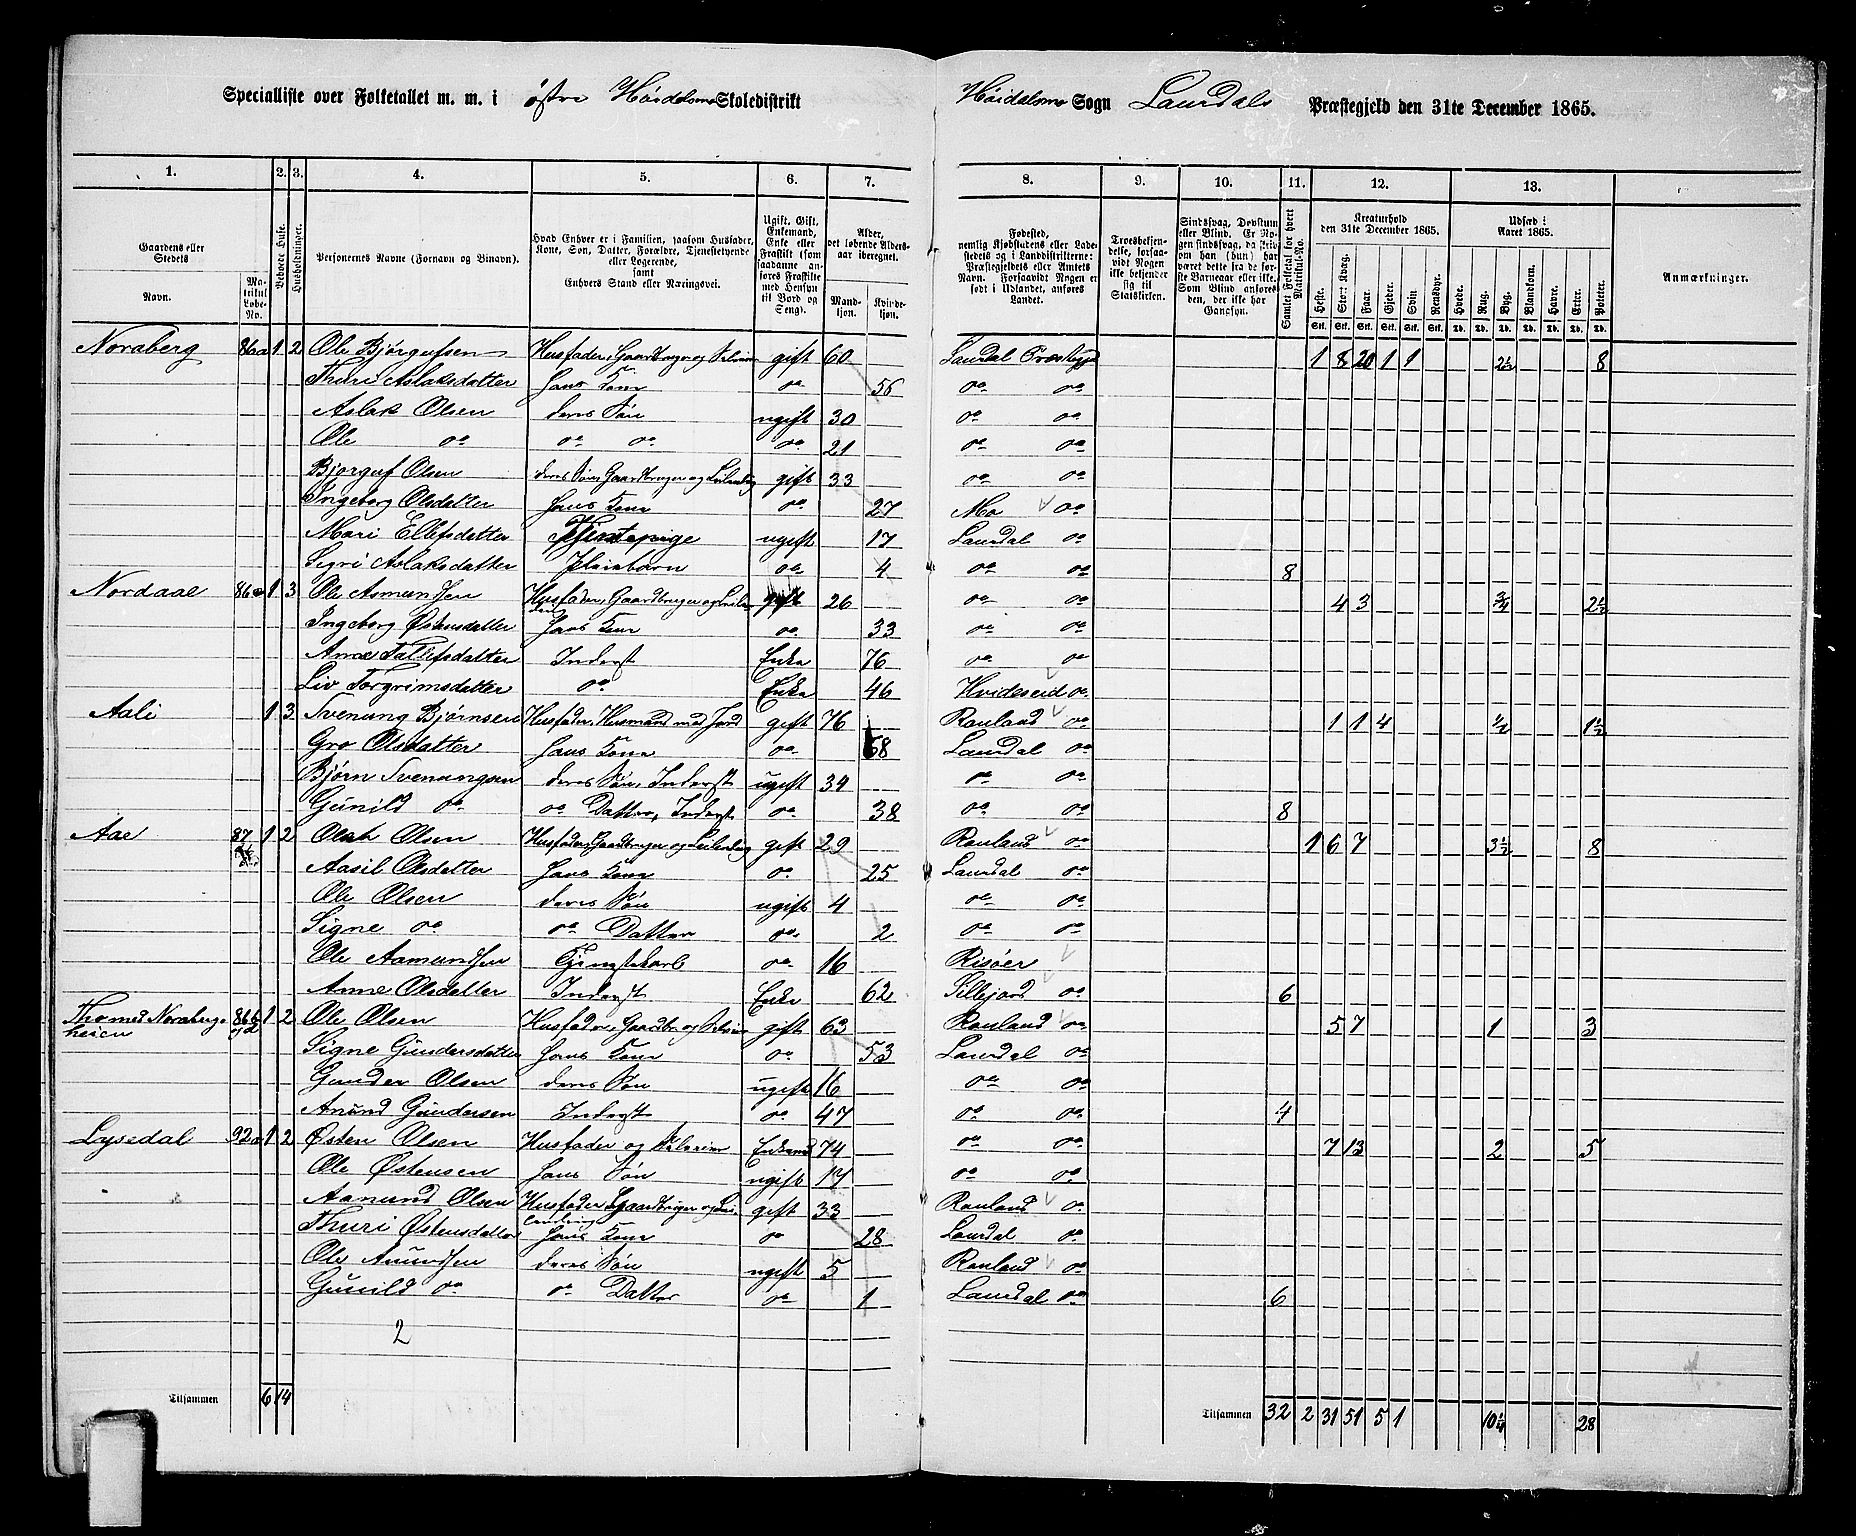 Specialliste over Folketallet m. m. i østre Höidalsmo Skoledistrikt Höidalsmo Sogn Laurdals Præstegjeld den 31te December 1865.
1. 2. 3. 4. 5. 6. 7. 8. 9. 10. 11. 12. 13.
Gaardens eller Stedets Navn. Matrikul Løbe-No. Beboede Huse. Husholdninger. Personernes Navne (Fornavn og Binavn). Hvad Enhver er i Familien, saasom Husfader, Kone, Søn, Datter, Forældre, Tjenestetyende eller Logerende, samt Enhvers Stand eller Næringsvei. Ugift, Gift, Enkemand, Enke eller Fraskilt (som saadanne anføres Fraskilte med Hensyn til Bord og Seng). Alder, det løbende Alders-aar iberegnet. Mandkjøn. Kvindekjøn. Fødested, nemlig Kjøbstadens eller Ladestedets og i Landdistrikterne: Præstegjeldets eller Amtets Navn. Forsaavidt Nogen er født i Udlandet, anføres Landet. Troesbekjendelse, forsaavidt Nogen ikke bekjender sig til Statskirken. Sindssvag, Døvstum eller Blind. Samlet Folketal for hvert Matrikul-No. Kreaturhold den 31te December 1865. Heste. Stort Kvæg. Faar. Gjeder. Svin. Rensdyr. Udsæd i Aaret 1865. Hvede. Rug. Byg. Blandkorn. Havre. Erter. Poteter. Anmærkninger.
Noraberg 86a 1 2 Ole Bjørgufsen Husfader, Gaardbruger og Selveier gift 60 Laurdal Præstegjd 1 8 20 1 1 2½ 8
Thuri Aslaksdatter hans Kone do 56 do do
Aslak Olsen deres Søn ugift 30 do do
Ole do do do do 21 do do
Bjørguf Olsen deres Søn, Gaardbruger og Leilending gift 33 do do
Ingeborg Olsdatter hans Kone do 27 Mo do
Mari Ellefsdatter Tjenstepige ugift 17 Laurdal do
Sigri Aslaksdatter Pleiebarn do 4 do do 8
Nordaae 86 1 3 Ole Asmundsen Husfader, Gaardbruger og Leilending gift 26 do do 4 3 ¾ 2½
Ingeborg Østensdatter hans Kone do 33 do do
Anne Tallefsdatter Inderst Enke 76 do do
Liv Torgrimsdatter do Enke 46 Hvideseid do
Aali 1 3 Svenung Bjørnsen Husfader, Husmand med Jord gift 76 Rauland do 1 1 4 ½ 1½
Gro Olsdatter hans Kone do 68 Laurdal do
Bjørn Svenungsen deres Søn, Inderst ugift 34 do do
Gunild do do Datter, Inderst do 38 do do 8
Aae 87 1 2 Olav Olsen Husfader, Gaardbruger og Leilending gift 29 Rauland do 1 6 7 3½ 8
Aasil Olsdatter hans Kone do 25 Laurdal do
Ole Olsen deres Søn ugift 4 do do
Signe do do Datter do 2 do do
Ole Aamundsen Tjenstekarl do 16 Risöer
Anne Olsdatter Inderst Enke 62 Sillejord do 6
Thomed Noraberg-heien 86b 1 2 Ole Olsen Husfader, Gaardbr og Selveier gift 63 Rauland do 5 7 1 3
Signe Gundersdatter hans Kone do 53 Laurdal do
Gunder Olsen deres Søn ugift 16 do do
Anund Gundersen Inderst do 47 do do 4
Lysedal 92a 1 2 Østen Olsen Husfader og Selveier Enkemd 74 do do 7 13 2 5
Ole Østensen hans Søn ugift 17 do do
Aanund Olsen Husfader, Gaardbruger og Leilending gift 33 Rauland do
Thuri Østensdatter hans Kone do 28 Laurdal do
Ole Anundsen deres Søn ugift 5 Rauland do
Gunild do do Datter do 1 Laurdal do 6
2
Tilsammen 6 14 Tilsammen 32 2 31 51 5 1 10¼ 28